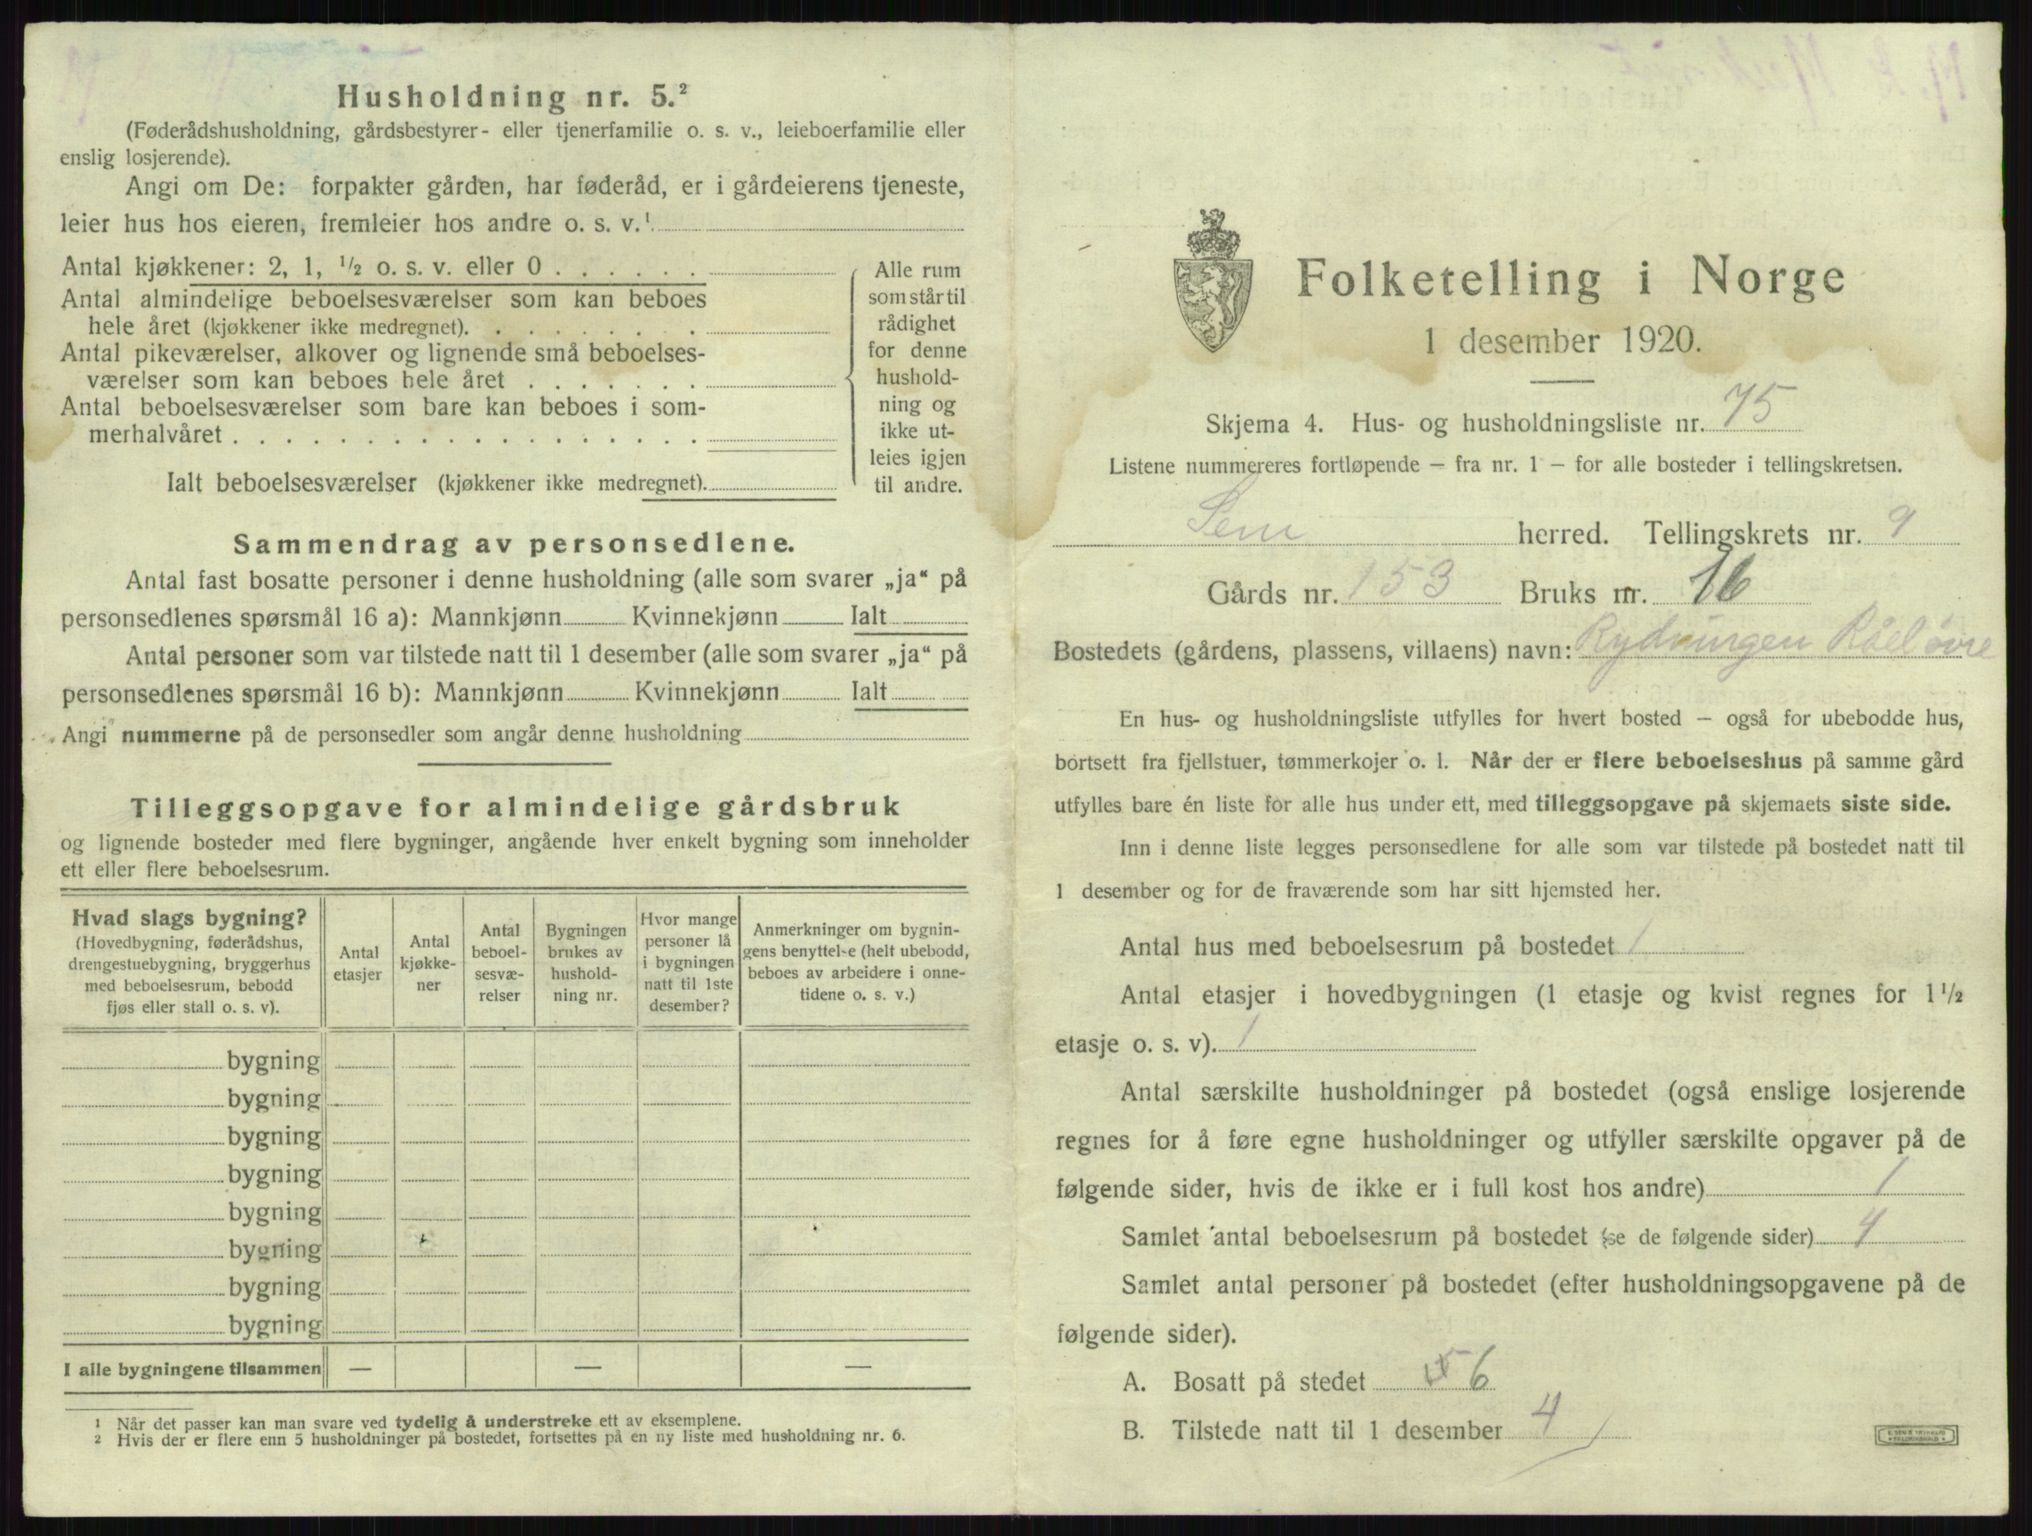 Husholdning nr. 5.²
(Føderådshusholdning, gårdsbestyrer- eller tjenerfamilie o. s. v., leieboerfamilie eller
enslig losjerende).
Angi om De: forpakter gården, har føderåd, er i gårdeierens tjeneste,
leier hus hos eieren, fremleier hos andre o. s. v.¹
Antal kjøkkener: 2, 1, ½ o. s. v. eller 0 . . . . . .
Antal almindelige beboelsesværelser som kan beboes
hele året (kjøkkener ikke medregnet). . . . . . . . .
Antal pikeværelser, alkover og lignende små beboelses-
værelser som kan beboes hele året . . . . . . .
Antal beboelsesværelser som bare kan beboes i som-
merhalvåret . . . . . . . . . . . . . . . . . .
Ialt beboelsesværelser (kjøkkener ikke medregnet).
Alle rum
som står til
rådighet
for denne
hushold-
ning og
ikke ut-
leies igjen
til andre.
Sammendrag av personsedlene.
Antal fast bosatte personer i denne husholdning (alle som svarer „ja“ på
personsedlenes spørsmål 16 a): Mannkjønn Kvinnekjønn Ialt
Antal personer som var tilstede natt til 1 desember (alle som svarer „ja“ på
personsedlenes spørsmål 16 b): Mannkjønn Kvinnekjønn Ialt
Angi nummerne på de personsedler som angår denne husholdning
Tilleggsopgave for almindelige gårdsbruk
og lignende bosteder med flere bygninger, angående hver enkelt bygning som inneholder
ett eller flere beboelsesrum.
Hvad slags bygning?
(Hovedbygning, føderådshus,
drengestuebygning, bryggerhus
med beboelsesrum, bebodd
fjøs eller stall o. s. v).
Antal
etasjer
Antal
kjøkke-
ner
Antal
beboel-
sesvæ-
relser
Bygningen
brukes av
hushold-
ning nr.
Hvor mange
personer lå
i bygningen
natt til 1ste
desember?
Anmerkninger om bygnin-
gens benyttelse (helt ubebodd,
beboes av arbeidere i onne-
tidene o. s. v.)
bygning
bygning
bygning
bygning
bygning
bygning
bygning
bygning
I alle bygningene tilsammen — — —
¹ Når det passer kan man svare ved tydelig å understreke ett av eksemplene.
² Hvis der er flere enn 5 husholdninger på bostedet, fortsettes på en ny liste med husholdning nr. 6.
Folketelling i Norge
1 desember 1920.
Skjema 4. Hus- og husholdningsliste nr. 75
Listene nummereres fortløpende — fra nr. 1 — for alle bosteder i tellingskretsen.
Sem herred. Tellingskrets nr. 9
Gårds nr. 153 Bruks nr. 16
Bostedets (gårdens, plassens, villaens) navn: Rydningen Råel øvre
En hus- og husholdningsliste utfylles for hvert bosted — også for ubebodde hus,
bortsett fra fjellstuer, tømmerkojer o. l. Når der er flere beboelseshus på samme gård
utfylles bare én liste for alle hus under ett, med tilleggsopgave på skjemaets siste side.
Inn i denne liste legges personsedlene for alle som var tilstede på bostedet natt til
1 desember og for de fraværende som har sitt hjemsted her.
Antal hus med beboelsesrum på bostedet 1
Antal etasjer i hovedbygningen (1 etasje og kvist regnes for 1½
etasje o. s. v). 1
Antal særskilte husholdninger på bostedet (også enslige losjerende
regnes for å føre egne husholdninger og utfyller særskilte opgaver på de
følgende sider, hvis de ikke er i full kost hos andre) 1
Samlet antal beboelsesrum på bostedet (se de følgende sider) 4
Samlet antal personer på bostedet (efter husholdningsopgavene på de
følgende sider).
A. Bosatt på stedet 6
B. Tilstede natt til 1 desember 4